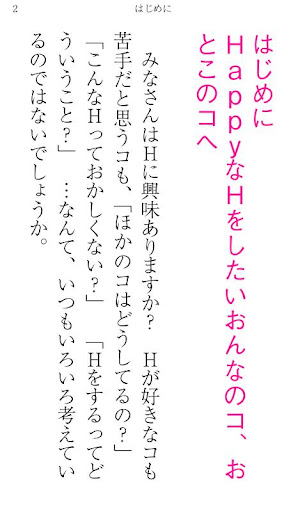 2
はじめに
はじめに
HappyなHをしたいおんなのコ、お
とこのコへ
みなさんはHに興味ありますか？　Hが好きなコも
苦手だと思うコも、「ほかのコはどうしてるの？」
「こんなHっておかしくない？」　「Hをするってど
ういうこと？」　…なんて、いつもいろいろ考えてい
るのではないでしょうか。